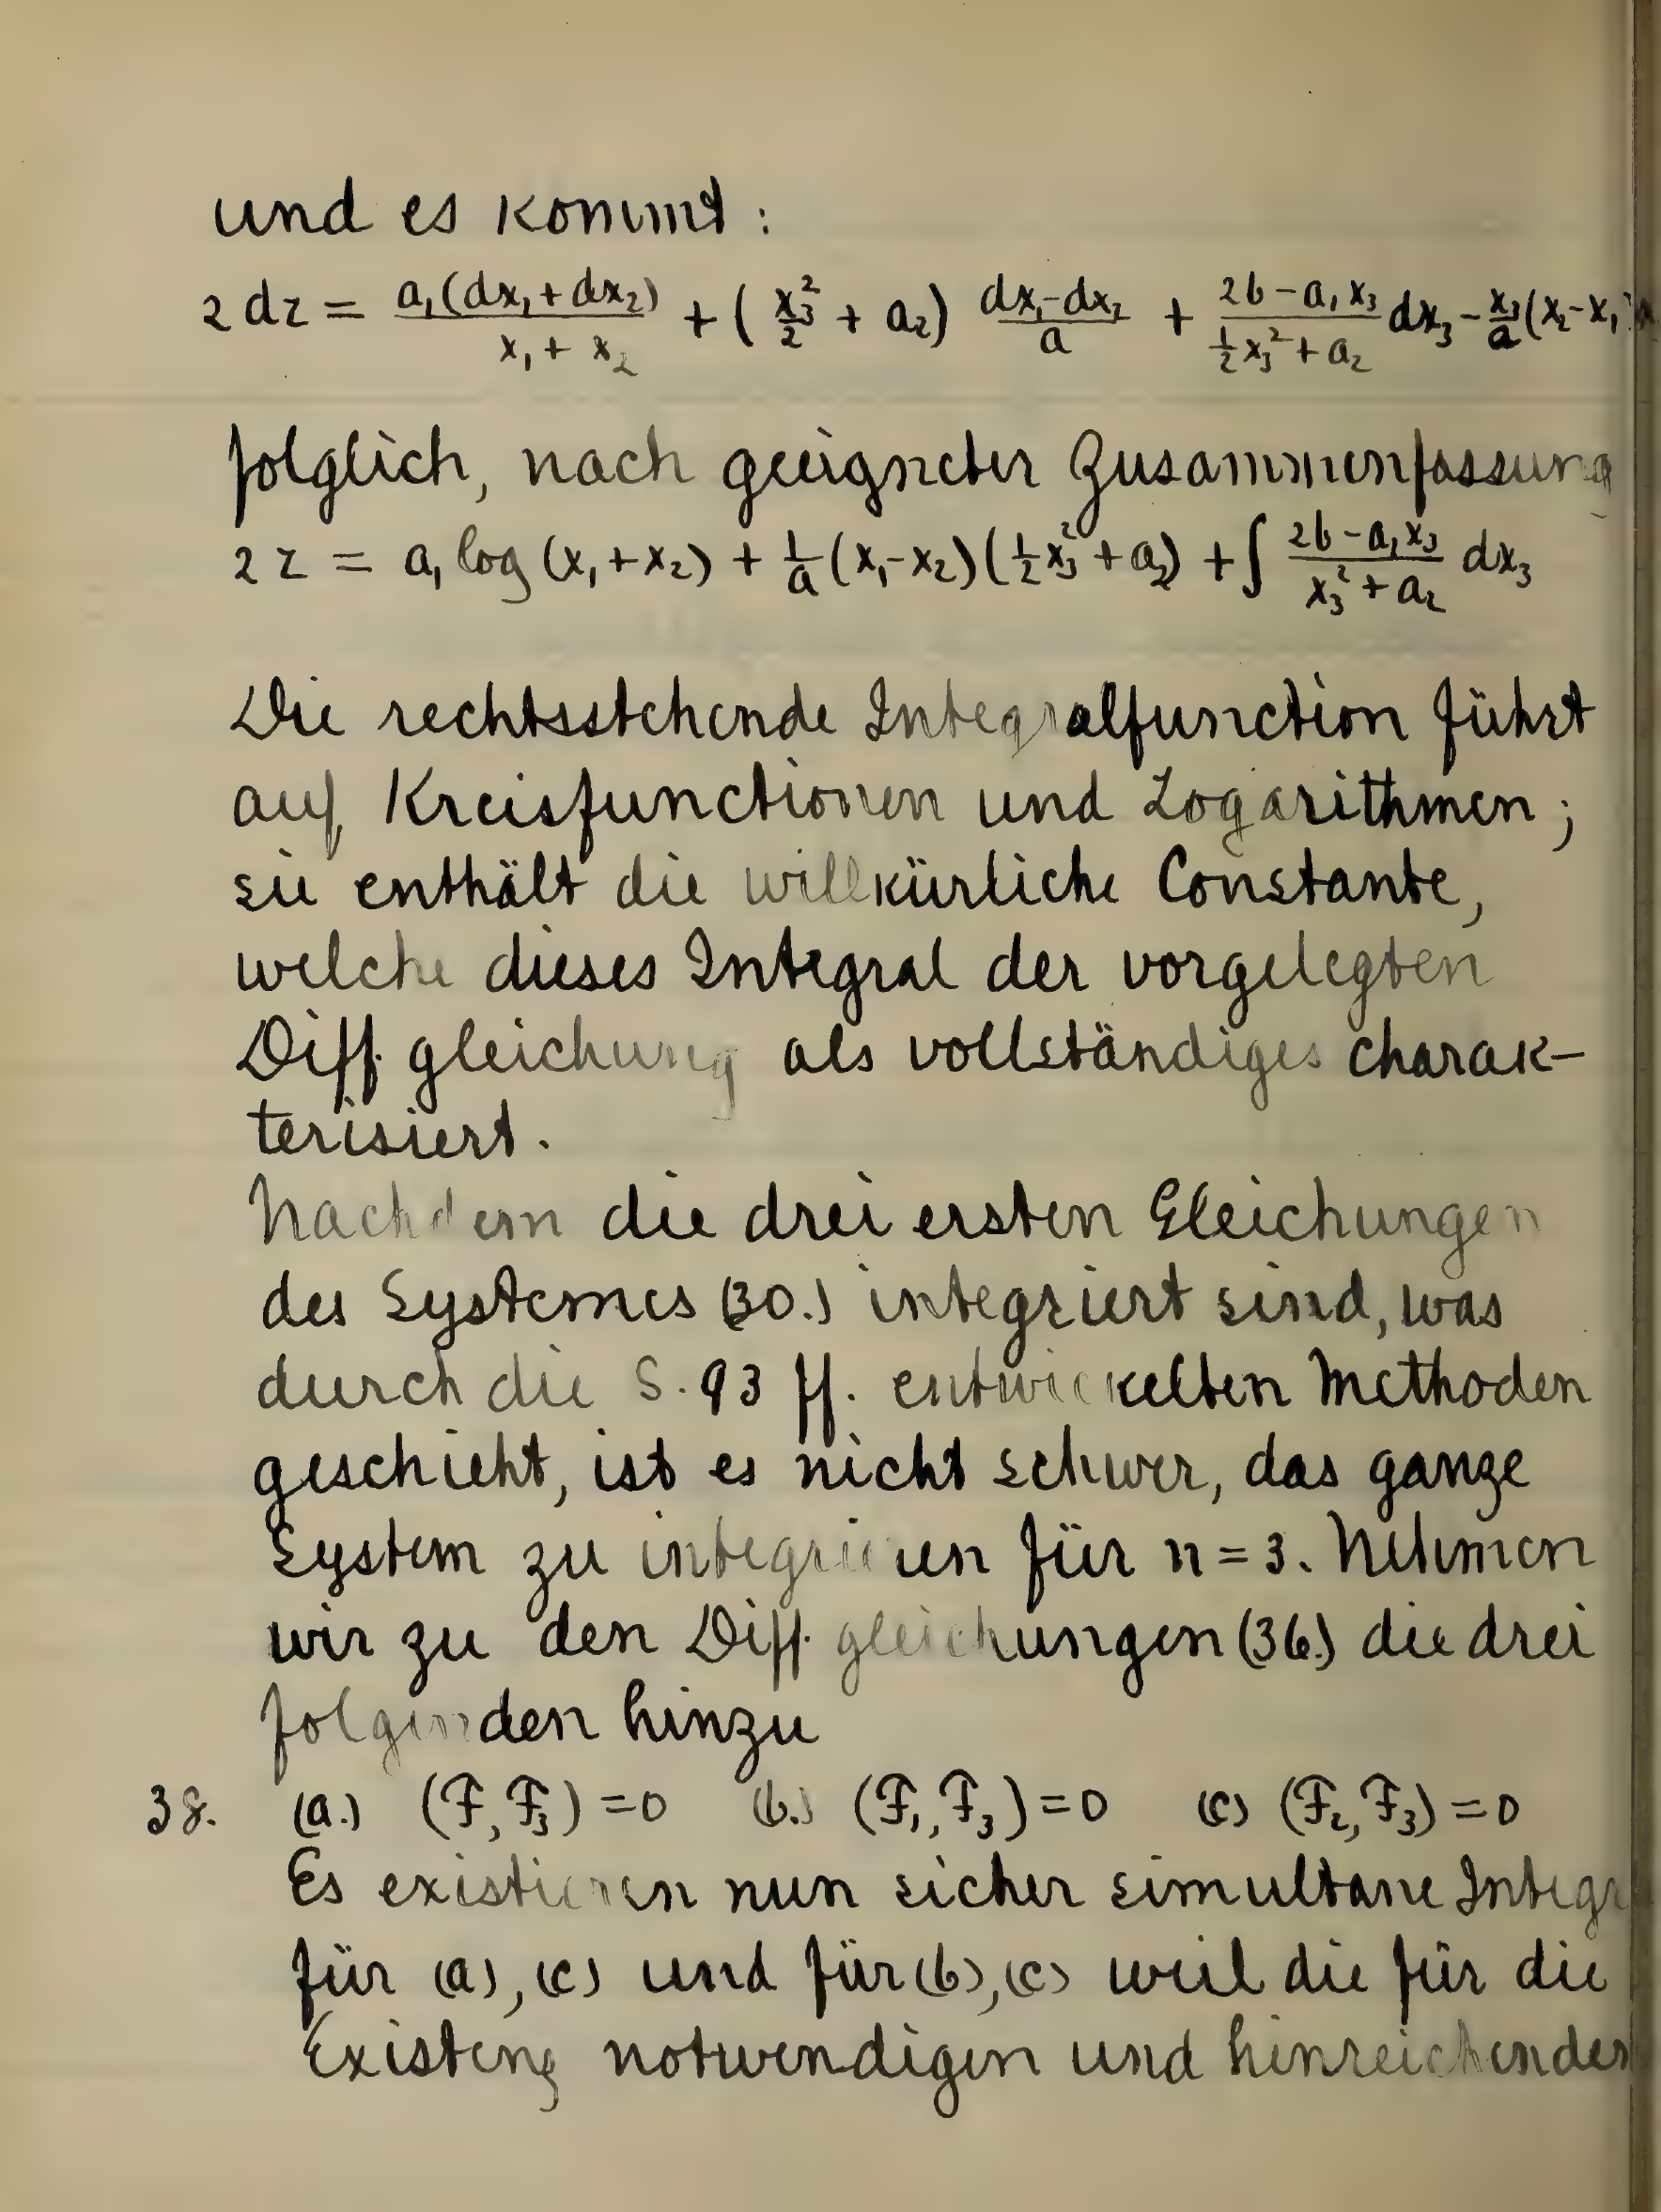 und es kommt:
2 dz = a₁(dx₁+dx₂)/(x₁+x₂) + (x₃²/2 + a₂) (dx₁-dx₂)/a + (2b-a₁x₃)/(½x₃²+a₂) dx₃ - x₃/a (x₂-x₁)
folglich, nach geeigneter Zusammenfassung
2 z = a₁ log (x₁+x₂) + 1/a (x₁-x₂)(½x₃²+a₂) + ∫ (2b-a₁x₃)/(x₃²+a₂) dx₃
Die rechtsstehende Integralfunction führt
auf Kreisfunctionen und Logarithmen;
sie enthält die willkürliche Constante,
welche dieses Integral der vorgelegten
Diff. gleichung als vollständiges charak-
terisiert.
Nachdem die drei ersten Gleichungen
des Systemes (30.) integriert sind, was
durch die S. 93 ff. entwickelten Methoden
geschieht, ist es nicht schwer, das ganze
System zu integrieren für n = 3. Nehmen
wir zu den Diff. gleichungen (36.) die drei
folgenden hinzu
38. (a.) (F, F₃) = 0 (b.) (F₁, F₃) = 0 (c) (F₂, F₃) = 0
Es existieren nun sicher simultane Integr
für (a), (c) und für (b), (c) weil die für die
Existenz notwendigen und hinreichenden